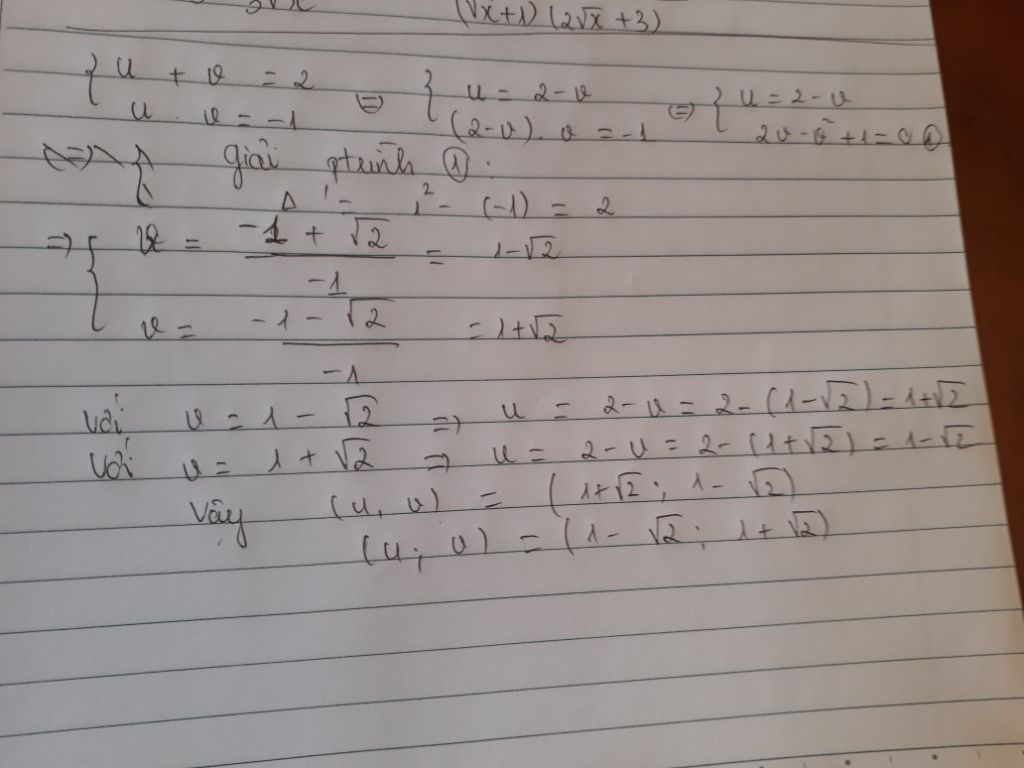 (√x+1)(2√x+3)
{ u + v = 2 ⇔ { u = 2-v ⇔ { u = 2-v
u . v = -1 (2-v). v = -1 2v-v²+1=0 ①
giải ptrình ①:
Δ' = 1² - (-1) = 2
⇒ { v = (-1 + √2)/(-1) = 1-√2
v = (-1 - √2)/(-1) = 1+√2
Với v = 1 - √2 ⇒ u = 2-v = 2-(1-√2)=1+√2
Với v = 1 + √2 ⇒ u = 2-v = 2-(1+√2)=1-√2
Vậy (u, v) = (1+√2; 1-√2)
(u; v) = (1-√2; 1+√2)